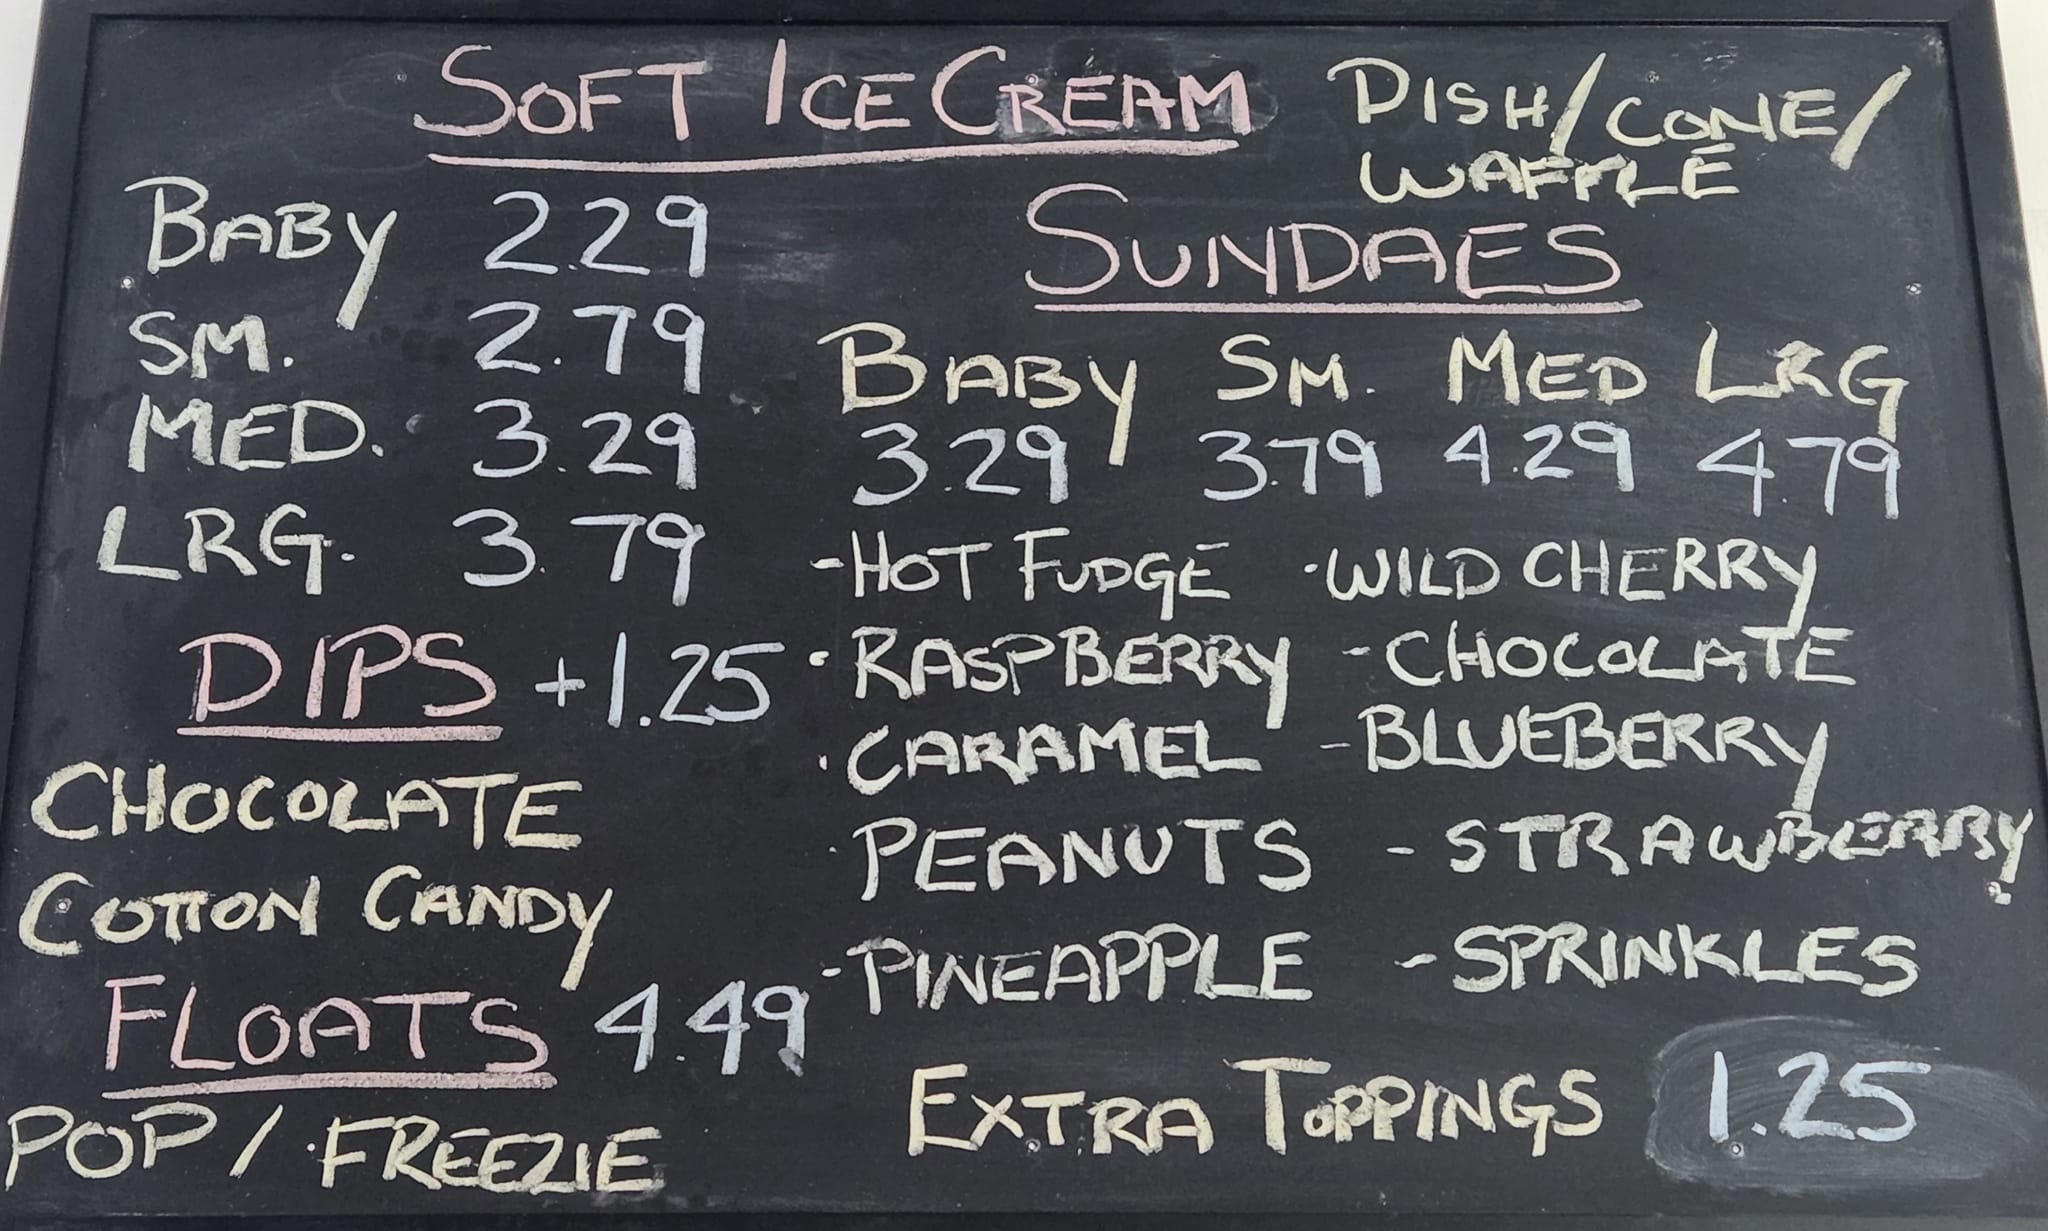 SOFT ICE CREAM
BABY 2.29
SM. 2.79
MED. 3.29
LRG. 3.79
DIPS +1.25
CHOCOLATE
COTTON CANDY
FLOATS 4.49
POP / FREEZIE
DISH/CONE/
WAFFLE
SUNDAES
BABY SM. MED LRG
3.29 3.79 4.29 4.79
-HOT FUDGE ·WILD CHERRY
·RASPBERRY -CHOCOLATE
·CARAMEL -BLUEBERRY
·PEANUTS -STRAWBERRY
-PINEAPPLE -SPRINKLES
EXTRA TOPPINGS 1.25